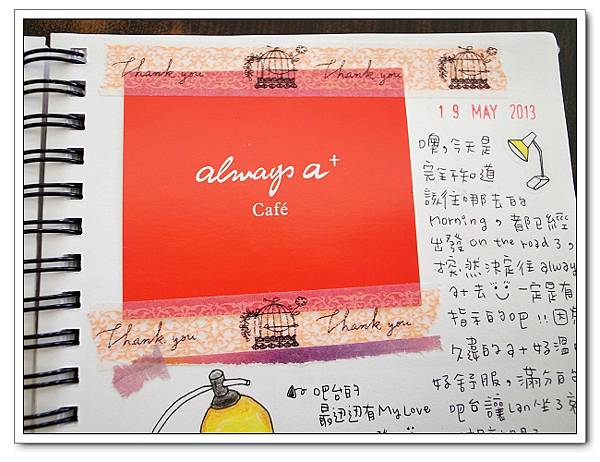 Thank you Thank you
always a+
Café
Thank you Thank you
19 MAY 2013
噢,今天是
完全不知道
該往哪去的
morning,都已經
出發on the road了,
才突然決定往alway
a+去 一定是有
指示的吧!!因為
久違的a+好溫
好舒服,滿分的
吧台讓Lan坐了
吧台的
最迅迅有My Love